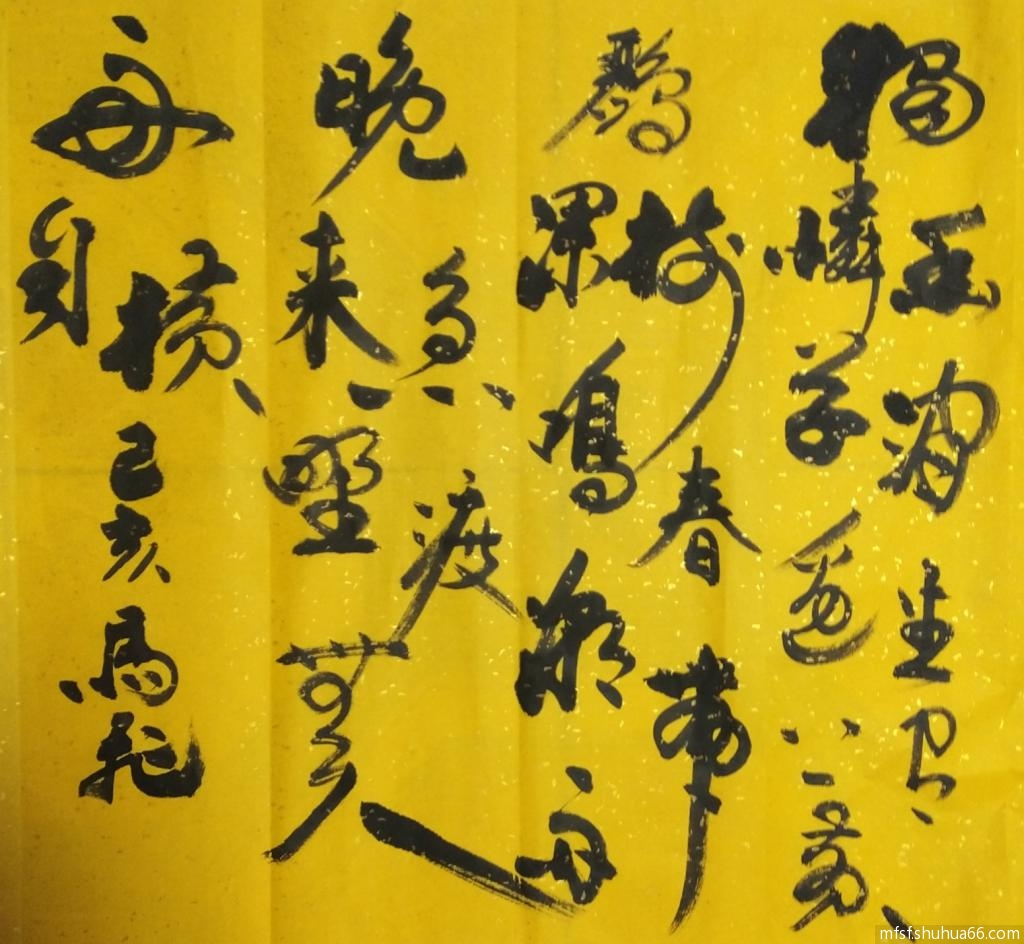 獨憐幽草澗邊生上有黄
鸝深樹鳴春潮帶雨
晚来急野渡無人
舟自橫己亥馬